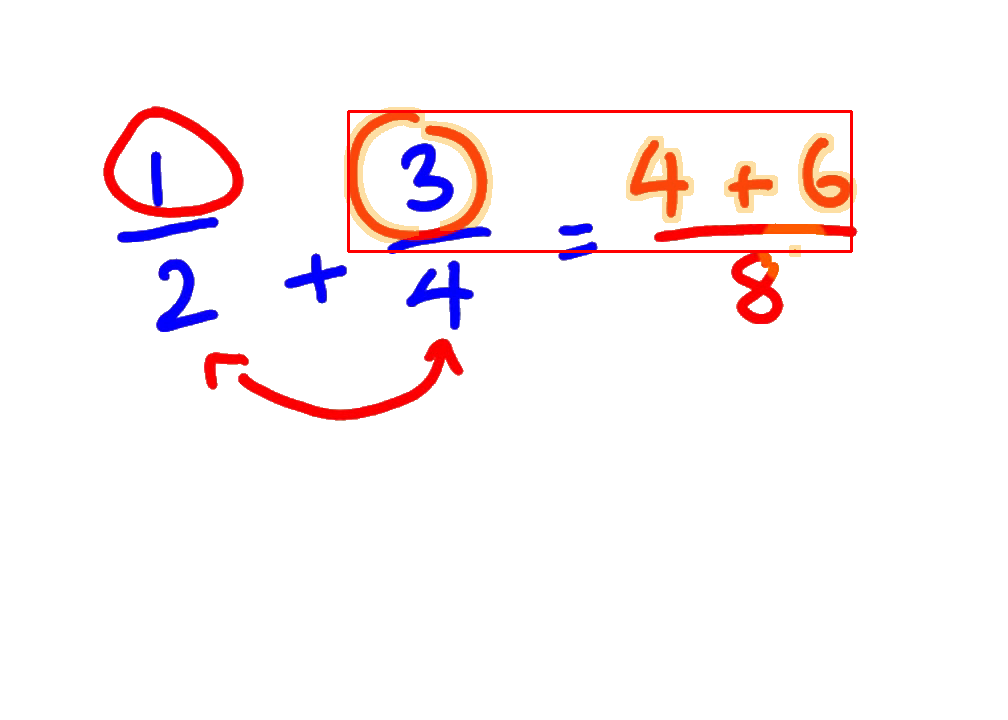 1/2 + 3/4 = 4 + 6/8